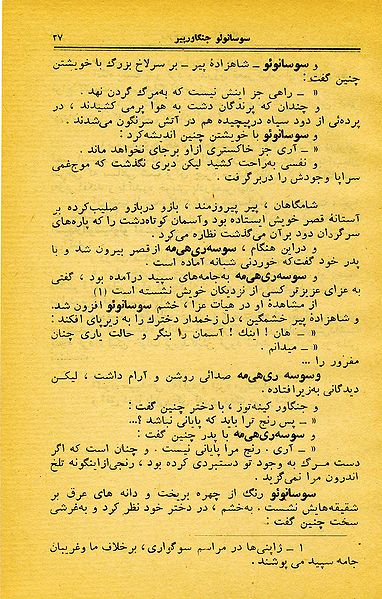 سوسانوئو جنگاورپیر ۲۷
و سوسانوئو ـ شاهزادهٔ پیر ـ بر سرلاخ بزرگ با خویشتن
چنین گفت :
« ـ راهی جز اینش نیست که به‌مرگ گردن نهد .
و چندان که پرندگان دشت به هوا برمی کشیدند ، در
پرده‌ئی از دود سیاه درپیچیده هم در آتش سرنگون می‌شدند .
و سوسانوئو با خویشتن چنین اندیشه‌کرد :
« ـ آری جز خاکستری ازاو برجای نخواهد ماند .
و نفسی به‌راحت کشید لیکن دیری نگذشت که موج‌غمی
سراپا وجودش را دربرگرفت .
شامگاهان ، پیر پیروزمند ، بازو دربازو صلیب‌کرده بر
آستانهٔ قصر خویش ایستاده بود وآسمان کوتاه‌دشت را که پاره‌های
سرگردان دود برآن می‌گذشت نظاره می‌کرد .
و دراین هنگام ، سوسه‌ری‌هی‌مه ازقصر بیرون شد و با
پدر خود گفت‌که خوردنی شبانه آماده است .
و سوسه‌ری‌هی‌مه به‌جامه‌های سپید درآمده بود ، گفتی
به عزای عزیزتر کسی از نزدیکان خویش نشسته است (۱)
از مشاهدهٔ او در هیات عزا ، خشم سوسانوئو افزون شد،
و شاهزادهٔ پیر خشمگین ، دل زخمدار دخترک را به زیرپای افکند :
« ـ هان ! اینک ! آسمان را بنگر و حالت یاری چنان
« ـ میدانم .
مغرور را ...
وسوسه ری‌هی‌مه صدائی روشن و آرام داشت ، لیکن
دیدگانی به‌زیرافتاده .
و جنگاور کینه‌توز ، با دختر چنین گفت :
« ـ پس رنج ترا باید که پایانی نباشد ؟...
و سوسه‌ری‌هی‌مه با پدر چنین گفت :
« ـ آری . رنج مرا پایانی نیست . و چنان است که اگر
دست مرگ به وجود تو دستبردی کرده بود ، رنجی‌ازاینگونه تلخ
اندرون مرا نمی‌گزید .
سوسانوئو رنگ از چهره بریخت و دانه های عرق بر
شقیقه‌هایش نشست . به‌خشم ، در دختر خود نظر کرد و به‌غرشی
سخت چنین گفت :
۱ ـ ژاپنی‌ها در مراسم سوگواری ، برخلاف ما وغربیان
جامه سپید می پوشند .